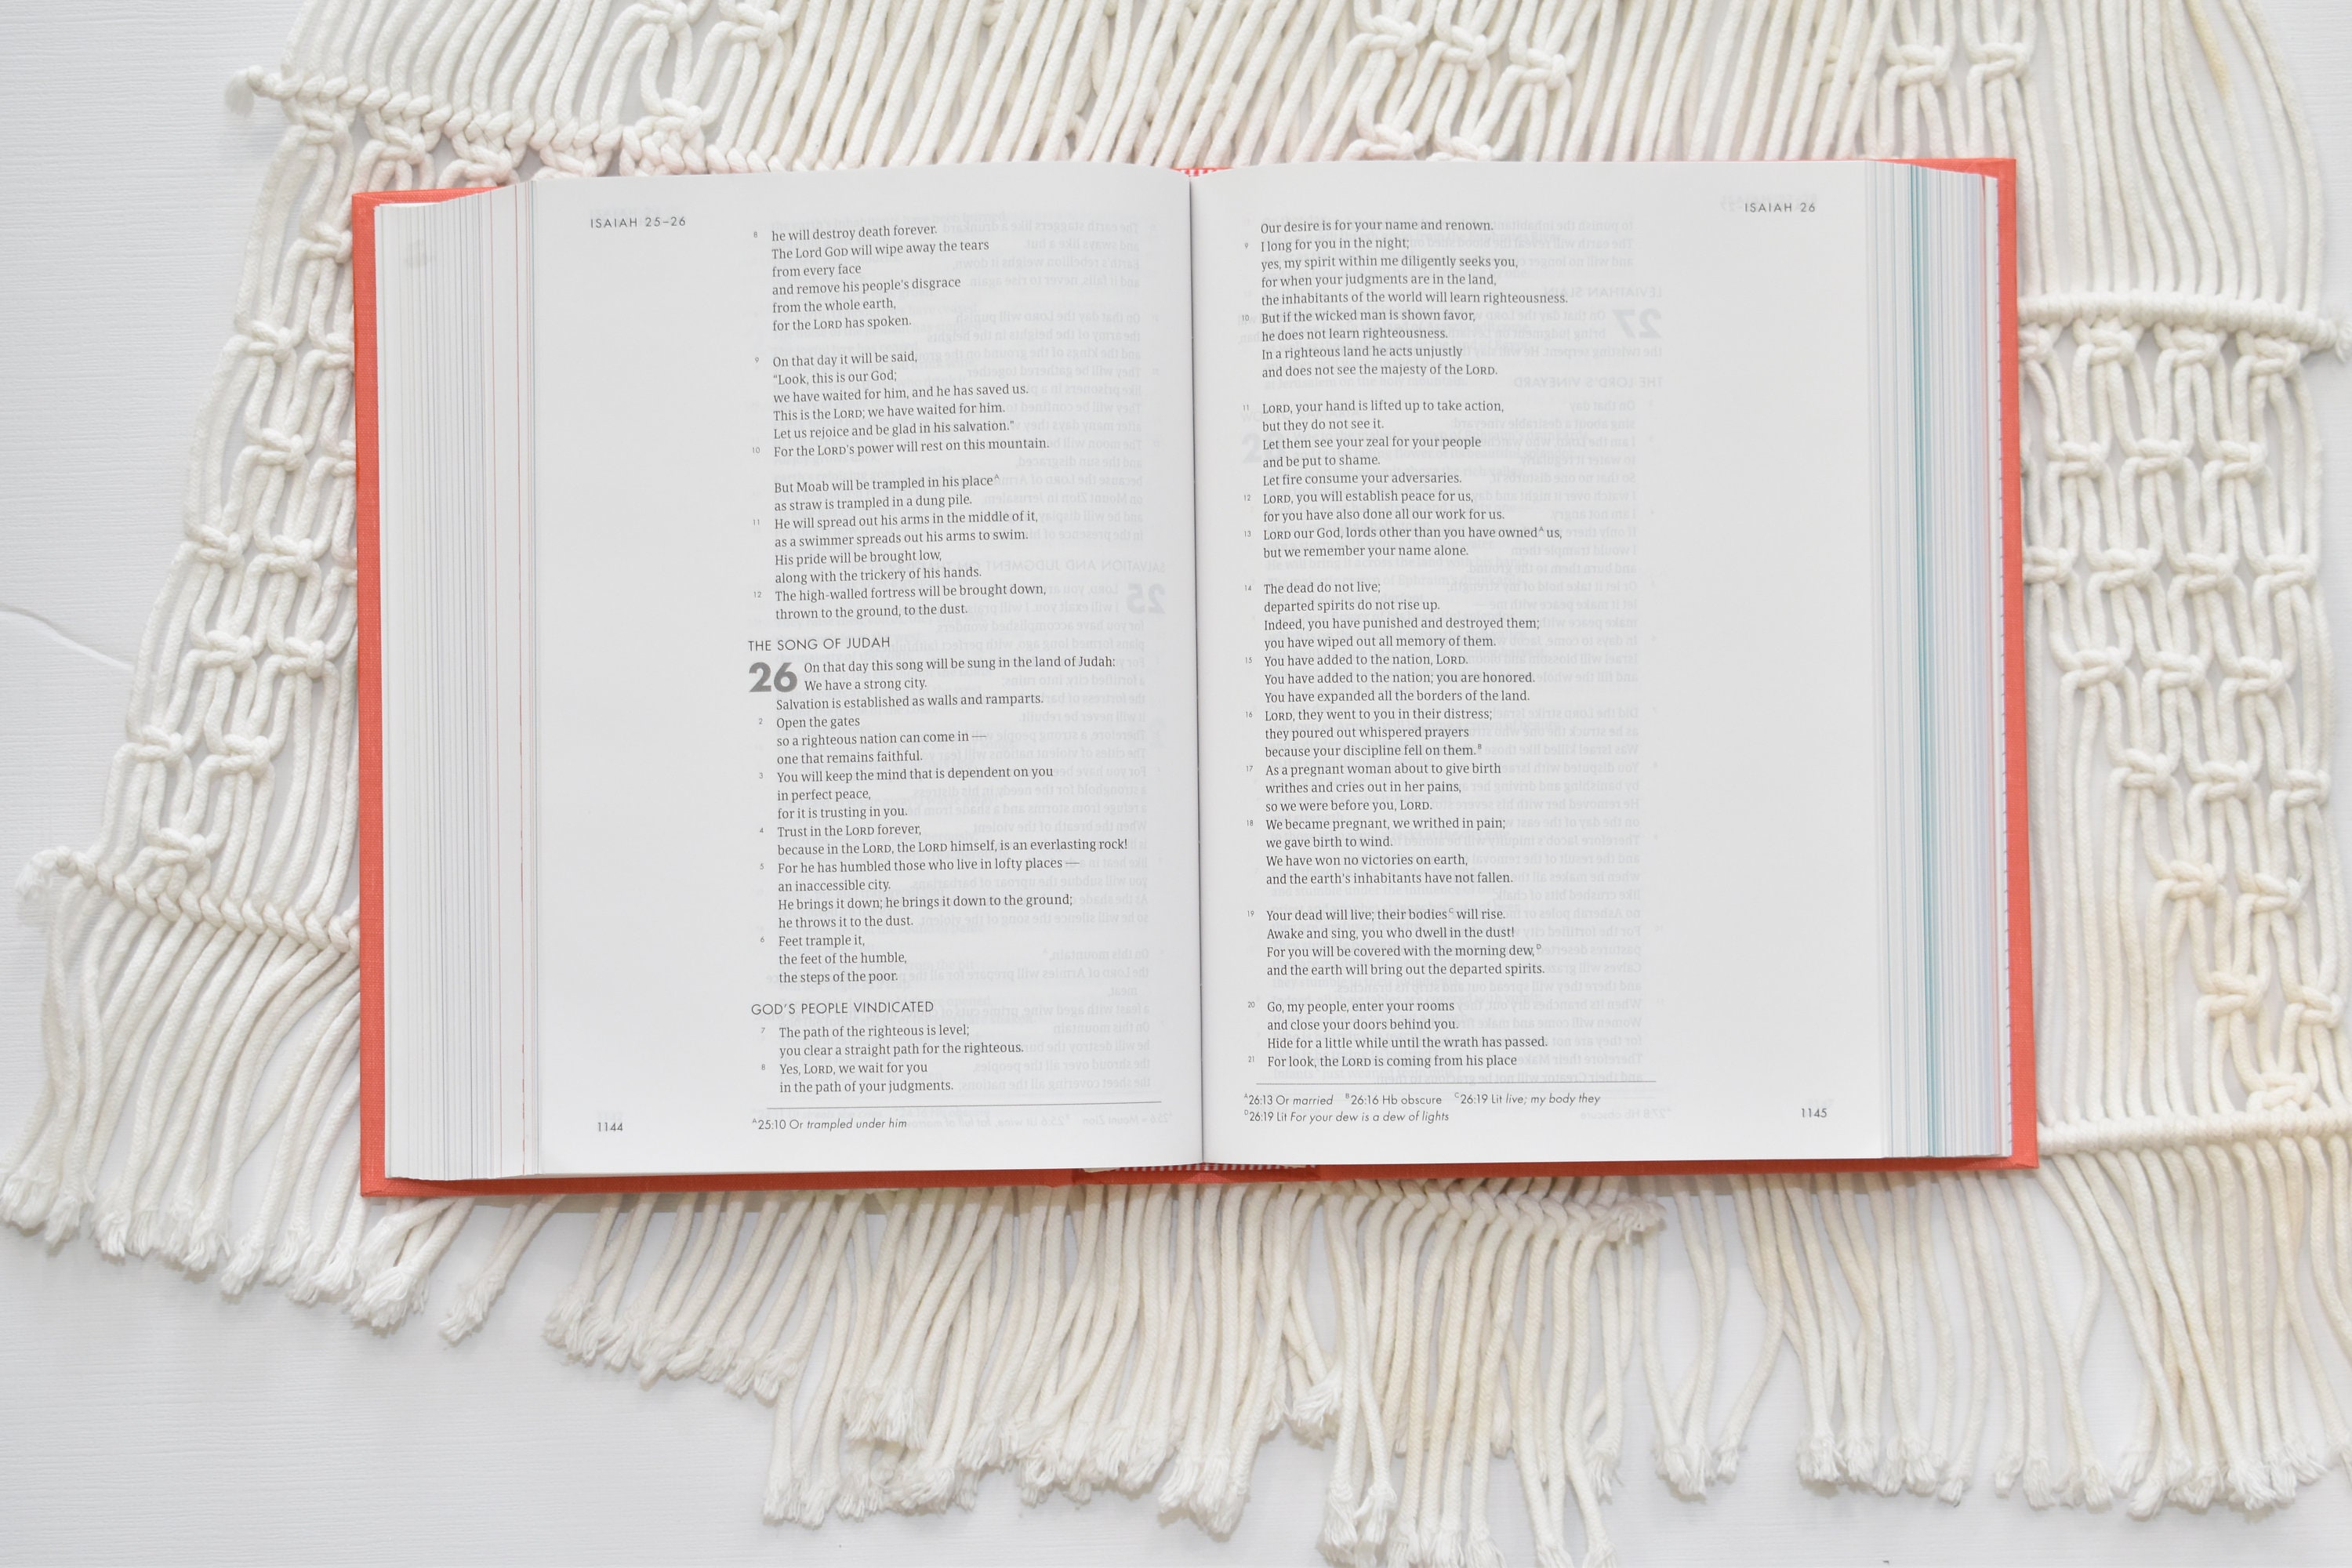 ISAIAH 25–26
8 he will destroy death forever.
The Lord GOD will wipe away the tears
from every face
and remove his people's disgrace
from the whole earth,
for the LORD has spoken.
9 On that day it will be said,
“Look, this is our God;
we have waited for him, and he has saved us.
This is the LORD; we have waited for him.
Let us rejoice and be glad in his salvation.”
10 For the LORD's power will rest on this mountain.
But Moab will be trampled in his place^A
as straw is trampled in a dung pile.
11 He will spread out his arms in the middle of it,
as a swimmer spreads out his arms to swim.
His pride will be brought low,
along with the trickery of his hands.
12 The high-walled fortress will be brought down,
thrown to the ground, to the dust.
THE SONG OF JUDAH
26 On that day this song will be sung in the land of Judah:
We have a strong city.
Salvation is established as walls and ramparts.
2 Open the gates
so a righteous nation can come in —
one that remains faithful.
3 You will keep the mind that is dependent on you
in perfect peace,
for it is trusting in you.
4 Trust in the LORD forever,
because in the LORD, the LORD himself, is an everlasting rock!
5 For he has humbled those who live in lofty places —
an inaccessible city.
He brings it down; he brings it down to the ground;
he throws it to the dust.
6 Feet trample it,
the feet of the humble,
the steps of the poor.
GOD'S PEOPLE VINDICATED
7 The path of the righteous is level;
you clear a straight path for the righteous.
8 Yes, LORD, we wait for you
in the path of your judgments.
^A25:10 Or trampled under him
1144
ISAIAH 26
Our desire is for your name and renown.
9 I long for you in the night;
yes, my spirit within me diligently seeks you,
for when your judgments are in the land,
the inhabitants of the world will learn righteousness.
10 But if the wicked man is shown favor,
he does not learn righteousness.
In a righteous land he acts unjustly
and does not see the majesty of the LORD.
11 LORD, your hand is lifted up to take action,
but they do not see it.
Let them see your zeal for your people
and be put to shame.
Let fire consume your adversaries.
12 LORD, you will establish peace for us,
for you have also done all our work for us.
13 LORD our God, lords other than you have owned^A us,
but we remember your name alone.
14 The dead do not live;
departed spirits do not rise up.
Indeed, you have punished and destroyed them;
you have wiped out all memory of them.
15 You have added to the nation, LORD.
You have added to the nation; you are honored.
You have expanded all the borders of the land.
16 LORD, they went to you in their distress;
they poured out whispered prayers
because your discipline fell on them.^B
17 As a pregnant woman about to give birth
writhes and cries out in her pains,
so we were before you, LORD.
18 We became pregnant, we writhed in pain;
we gave birth to wind.
We have won no victories on earth,
and the earth's inhabitants have not fallen.
19 Your dead will live; their bodies^C will rise.
Awake and sing, you who dwell in the dust!
For you will be covered with the morning dew,^D
and the earth will bring out the departed spirits.
20 Go, my people, enter your rooms
and close your doors behind you.
Hide for a little while until the wrath has passed.
21 For look, the LORD is coming from his place
^A26:13 Or married ^B26:16 Hb obscure ^C26:19 Lit live; my body they
^D26:19 Lit For your dew is a dew of lights
1145